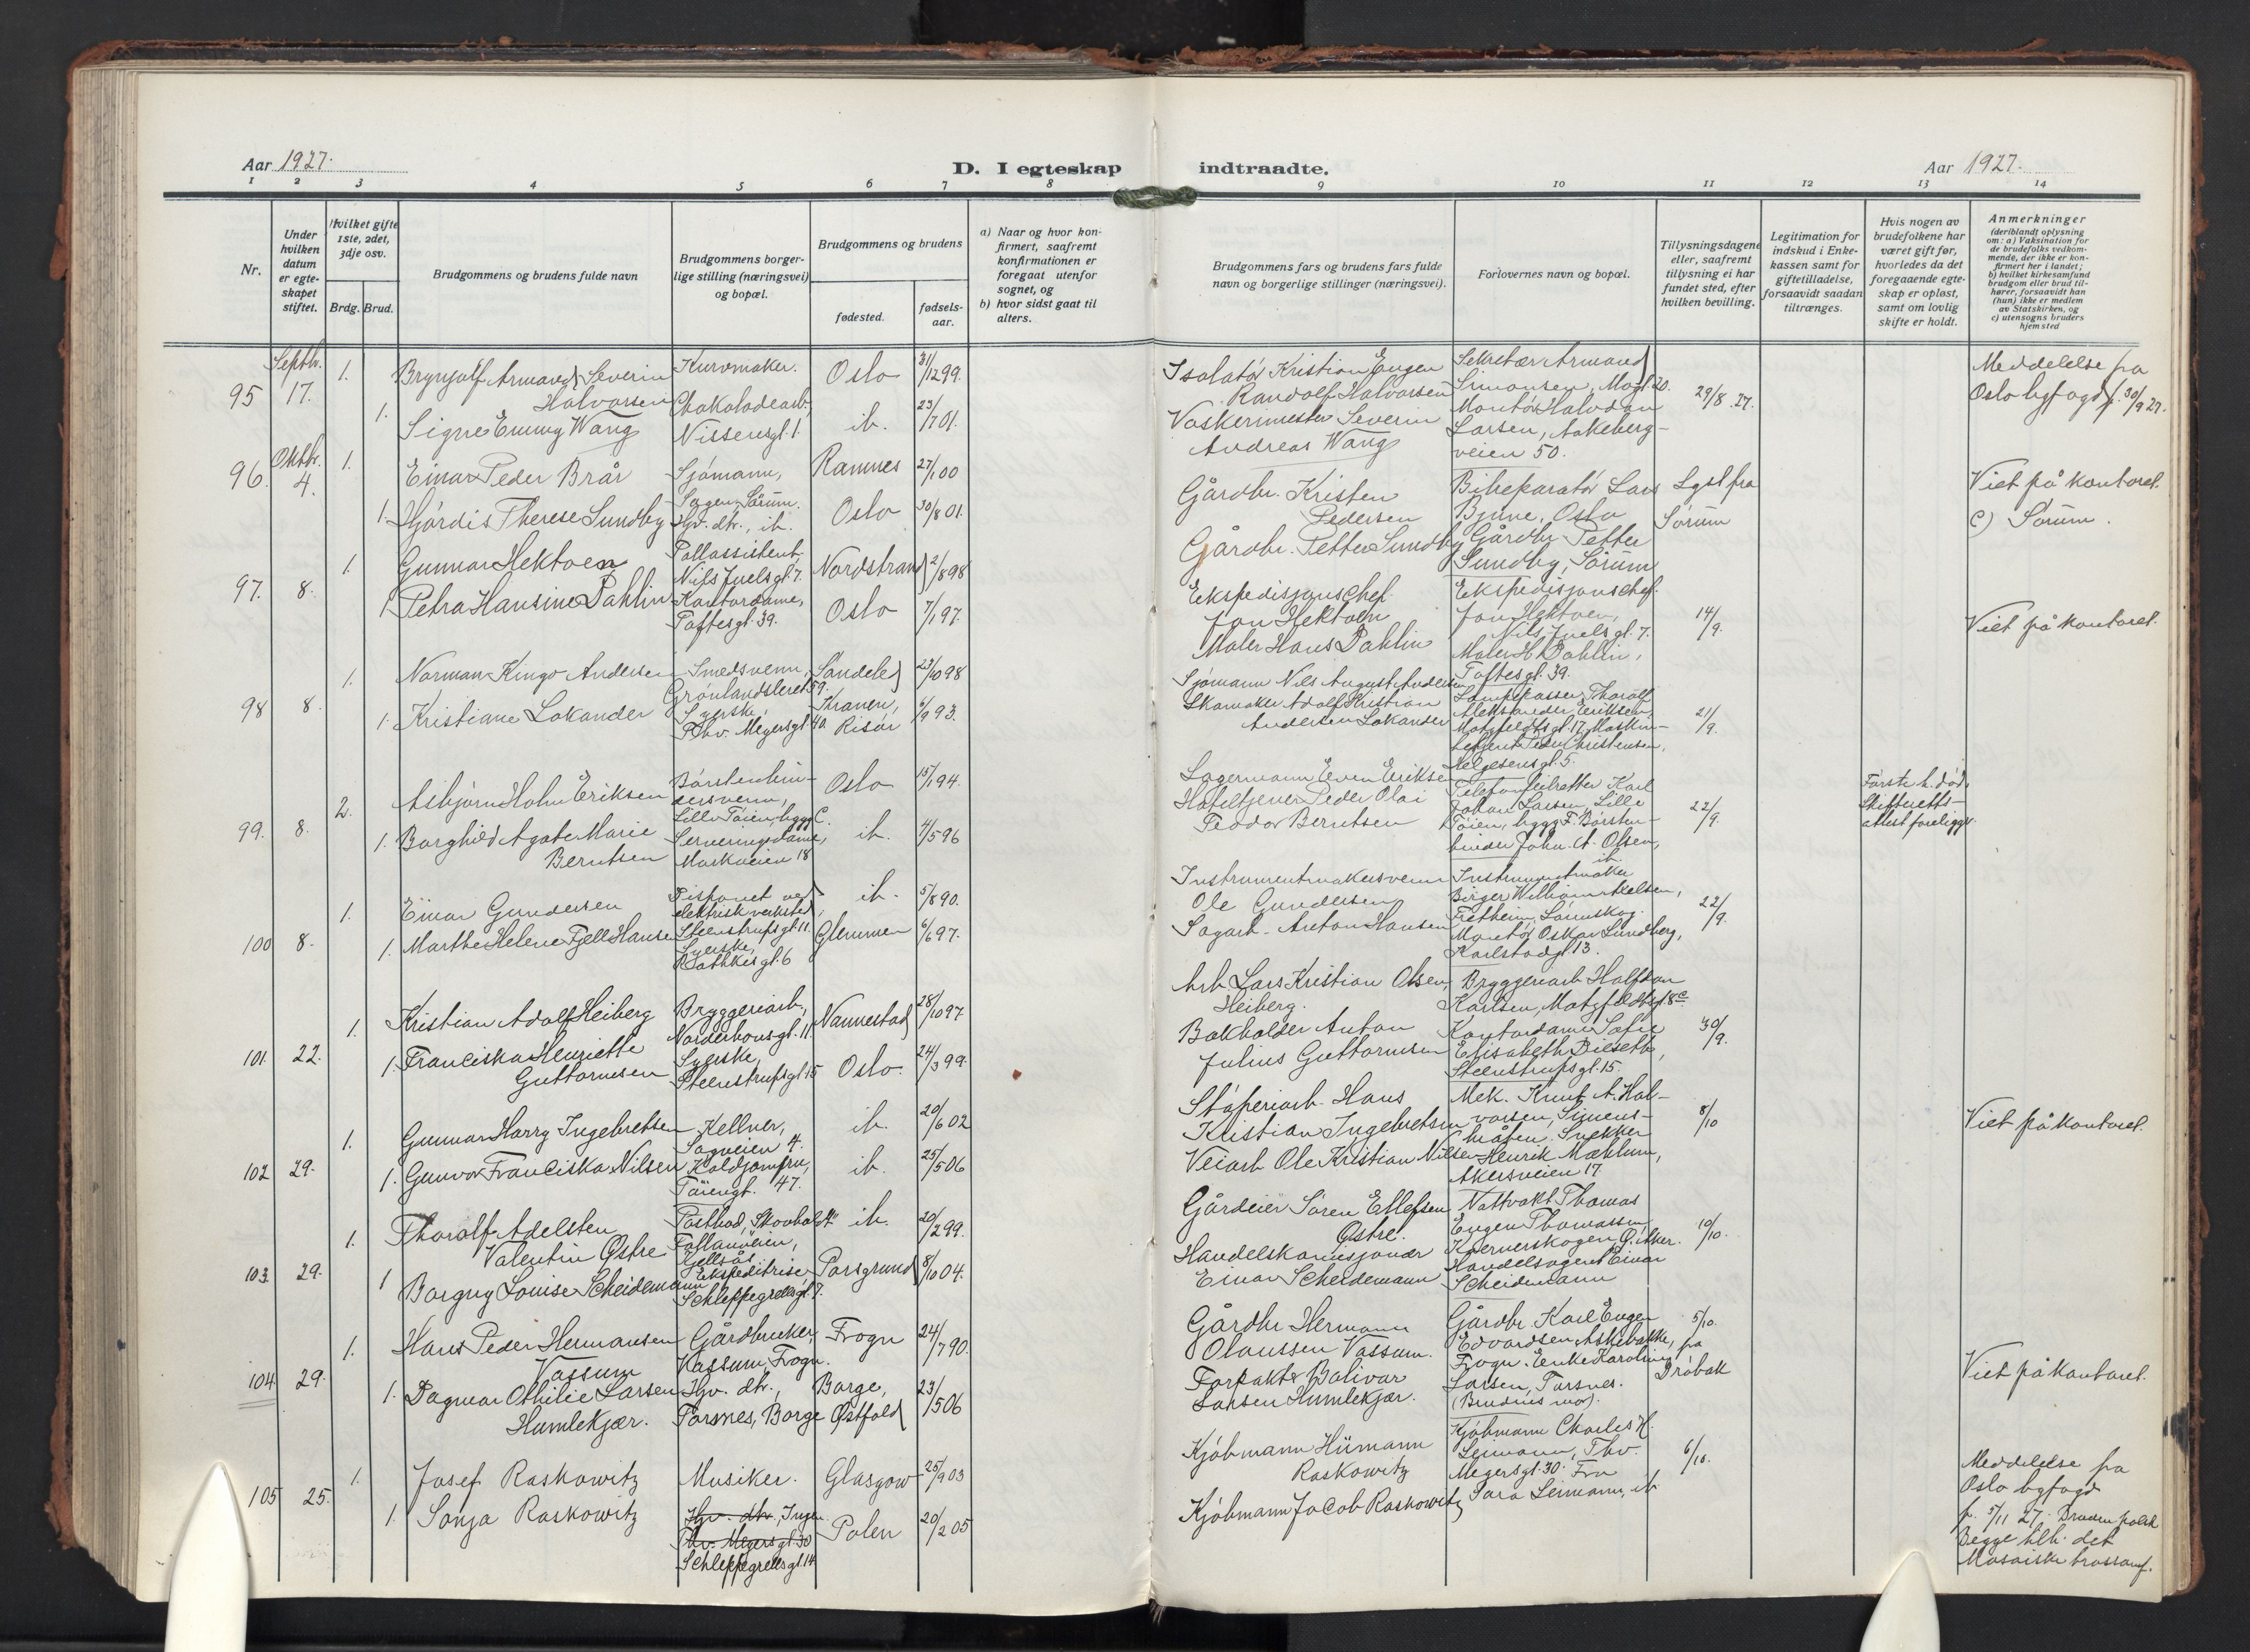 Aar 1927.
D. I egteskap
indtraadte.
Aar 1927.
1 2 3 4 5 6 7 8 9 10 11 12 13 14
Nr.
Under hvilken datum er egteskapet stiftet.
Hvilket gifte 1ste, 2det, 3dje osv.
Brdg. Brud.
Brudgommens og brudens fulde navn
Brudgommens borgerlige stilling (næringsvei) og bopæl.
Brudgommens og brudens
fødested.
fødselsaar.
a) Naar og hvor konfirmert, saafremt konfirmationen er foregaat utenfor sognet, og
b) hvor sidst gaat til alters.
Brudgommens fars og brudens fars fulde navn og borgerlige stillinger (næringsvei).
Forlovernes navn og bopæl.
Tillysningsdagene eller, saafremt tillysning ei har fundet sted, efter hvilken bevilling.
Legitimation for indskud i Enkekassen samt for giftetilladelse, forsaavidt saadan tiltrænges.
Hvis nogen av brudefolkene har været gift før, hvorledes da det foregaaende egteskap er opløst, samt om lovlig skifte er holdt.
Anmerkninger (deriblandt oplysning om: a) Vaksination for de brudefolks vedkommende, der ikke er konfirmert her i landet; b) hvilket kirkesamfund brudgom eller brud tilhører, forsaavidt han (hun) ikke er medlem av Statskirken, og c) utensogns bruders hjemsted
95 Septbr. 17.
1. Brynjulf Armand Severin Halvorsen
Kurvmaker.
Oslo 31/12 99.
1. Signe Emmy Wang
Chokoladearb., Nissensgt. 1.
ib. 23/7 01.
Isolatør Kristian Eugen Randolf Halvorsen
Vaskerimester Severin Andreas Wang
Sekretær Armand Simonsen,
Montør Halvdan Larsen, Aakebergveien 50.
29/8 27.
Meddelelse fra Oslo byfogd f. 30/9 27.
96. Oktbr. 4.
1. Einar Peder Brår
Sjømann, Sagen, Sørum.
Ramnes 27/1 00
1. Hjørdis Therese Sundby
Hgv. dtr., ib.
Oslo 30/8 01.
Gårdbr. Kristen Pedersen
Gårdbr. Petter Sundby
Bilreparatør Lars Bjune, Oslo
Gårdbr. Petter Sundby, Sørum
Lyst fra Sørum
Viet på kontoret.
c) Sørum.
97. 8.
1. Gunnar Hektoen
Nils Juelsgt. 7.
Nordstrand 2/8 98
1. Petra Hansine Dahlin
Kontordame, Toftesgt. 39.
Oslo 7/1 97.
Ekspedisjonschef. Jon Hektoen
Maler Hans Dahlin
Ekspedisjonschef. Jon Hektoen, Nils Juelsgt. 7.
Maler H. Dahlin, Toftesgt. 39.
14/9.
Viet på kontoret.
98 8.
1. Norman Kingo Andersen
Smedsvenn, Grønlandsleret 59.
Søndeled 23/10 98
1. Kristiane Lokander
Syerske, Thv. Meyersgt. 40.
Kranen, Risør 6/9 93.
Sjømann Nils August Andersen
Skomaker Adolf Kristian Andersen Lokander
Lampepasser Thorolf Aleksander Eriksen, Motzfeldtsgt. 17, Maskinbetjent Peder Christensen, Helgesensgt. 5.
21/9.
99. 8.
2. Asbjørn Holm Eriksen
Børstenbindersvenn, Lille Tøien, bygg C.
Oslo 15/1 94.
1. Borghild Agate Marie Berntsen
Serveringsdame, Markveien 18
ib. 4/5 96
Lagermann Even Eriksen
Hotelltjener Peder Olai Teodor Berntsen
Telefonfeilretter Karl Johan Larsen, Lille Tøien, bygg F. Børstenbinder John. A. Olsen, ib.
22/9.
Første h. død. Skifteretts-attest foreligger.
100 8.
1. Einar Gundersen
elektrisk verksted, Steenstrupsgt. 11.
ib. 5/8 90.
1. Marthe Helene Fjell Hansen
Syerske, Rathkesgt. 6
Glemmen 6/6 97.
Instrumentmakersvenn Ole Gundersen
Sagarb. Anton Hansen
Instrumentmaker Birger William Axelsen, Fretheim, Lørenskog.
Montør Oskar Lundberg, Karlstadgt. 13.
22/9.
101. 22.
1. Kristian Adolf Heiberg
Bryggeriarb., Norderhovsgt. 11.
Nannestad 28/10 97
1. Franciska Henriette Guttormsen
Syerske, Steenstrupsgt. 15
Oslo. 24/3 99.
Arb. Lars Kristian Olsen Heiberg.
Bokholder Anton Julius Guttormsen
Bryggeriarb. Halfdan Karlsen, Motzfeldtsgt. 8 c.
Kontordame Sofie Elisabeth Diesetb, Steenstrupsgt. 15.
30/9.
102 29.
1. Gunnar Harry Ingebretsen
Kellner, Sagveien 4.
ib. 20/6 02
1. Gunvor Franciska Nilsen
Koldjomfru, Tøiengt. 47.
ib. 25/5 06
Støperiarb. Hans Kristian Ingebretsen
Veiarb. Ole Kristian Nilsen
Mek. Knut A. Halvorsen, Simensbråten. Snekker Henrik Mæhlum, Akersveien 17.
8/10
Viet på kontoret.
103. 29.
1. Thoralf Adelsten Valentin Østre
Postbud, "Skovholdt" Kjellsås
ib. 20/2 99.
1 Borgny Louise Scheidemann
Ekspeditrise, Schleppegrellsgt. 7.
Porsgrund 8/10 04.
Gårdeier Søren Ellefsen Østre.
Handelskommisjonær Einar Scheidemann
Nattvakt Thomas Eugen Thomassen
Handelsagent Einar Scheidemann
10/10.
104 29.
1. Hans Peder Hermansen Vassum
Gårdbruker, Vassum, Frogn.
Frogn 24/7 90.
1. Dagmar Othilie Larsen Humlekjær.
Hgv. dtr., Torsnes, Borge
Borge, Østfold 23/5 06
Gårdbr. Hermann Olaussen Vassum.
Forpakter Bolivar Larsen Humlekjær.
Gårdbr. Karl Eugen Edvardsen Askebakke, Frogn. Enke Karoline Larsen, Torsnes. (Brudens mor).
5/10. fra Drøbak
Viet på kontoret.
105 25.
1. Josef Raskowitz
Musiker.
Glasgow 25/9 03
1. Sonja Raskowitz
Hgv. dtr., Ingen
Thv. Meyersgt. 30
Schleppegrellsgt. 14
Polen 20/2 05
Kjøbmann Hiimann Raskowitz
Kjøbmann Jacob Raskowitz
Kjøbmann Charles H. Leimann, Thv. Meyersgt. 30. Fru Sara Leimann, ib
6/10.
Meddelelse fra Oslo byfogd f. 5/11 27. Bruden polsk
Begge tilh. det Mosaiske trossamf.